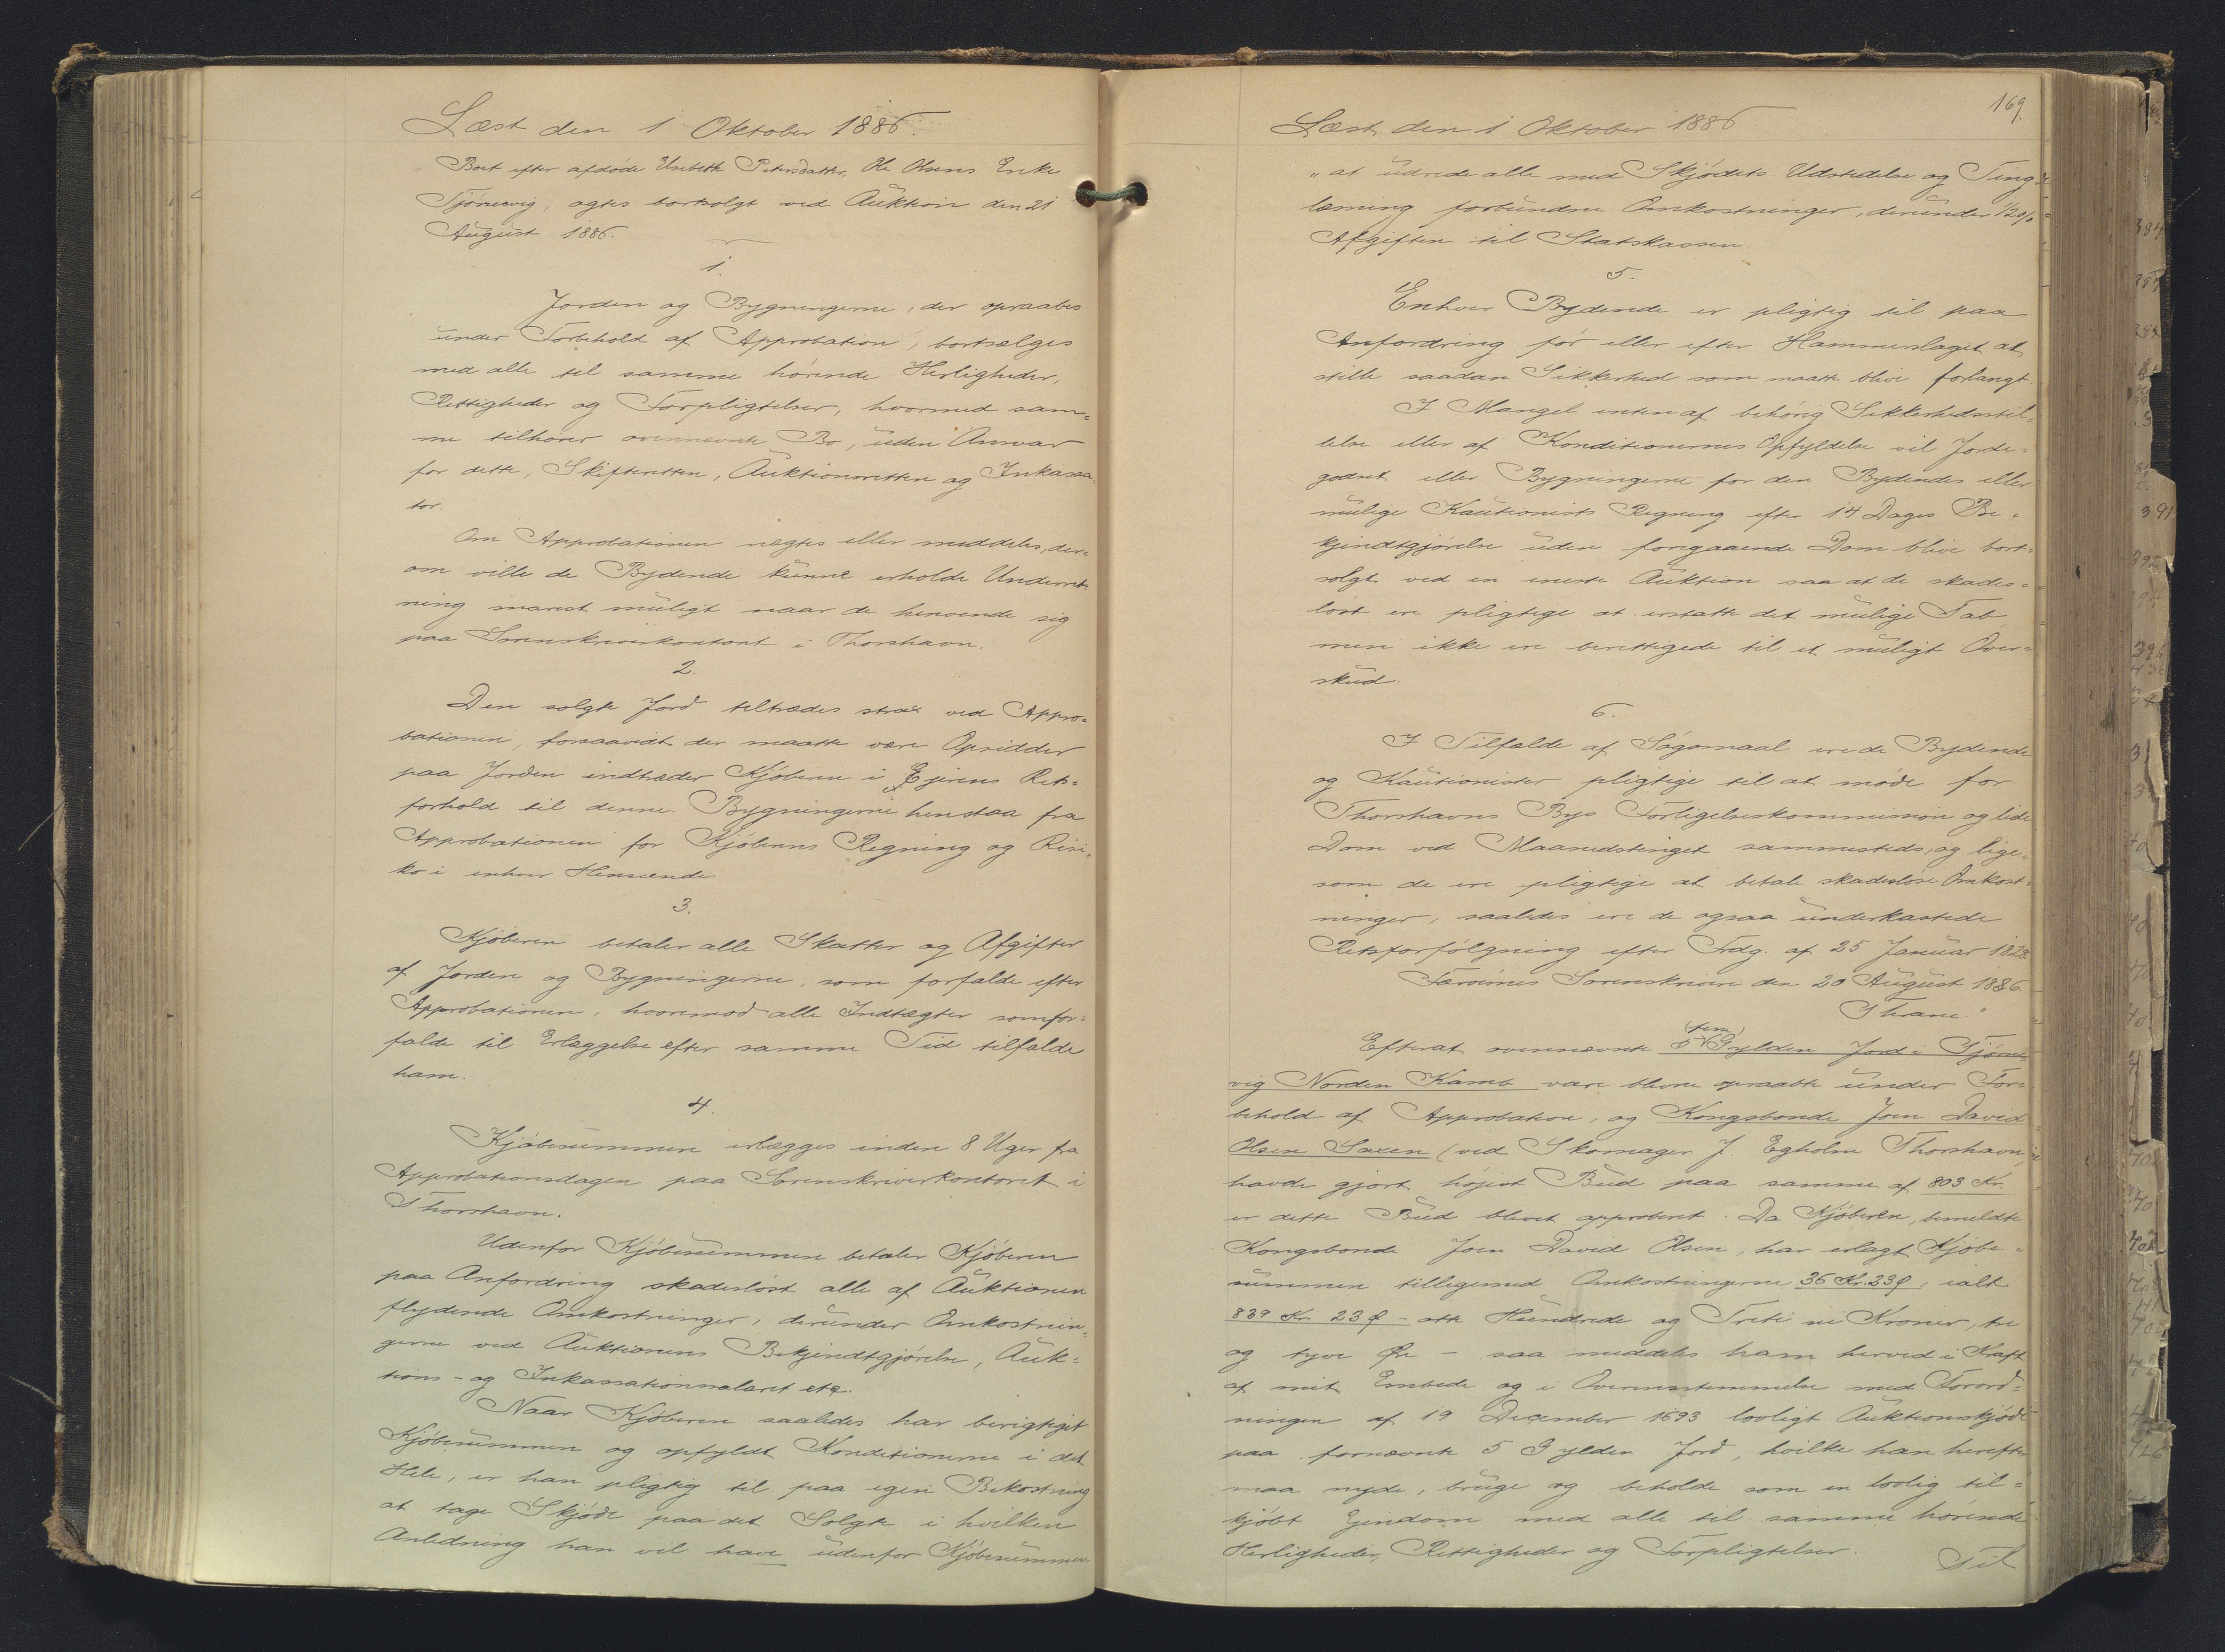 Læst den 1 Oktober 1886.
Boet efter afdøde Elsebeth Petersdatter, Ole Olsens Enke
Tjörnevig, agtes bortsolgt ved Auktion den 21
August 1886.
1.
Jorden og Bygningerne, der opraabes
under Forbehold af Approbation, bortsælges
med alle til samme hørende Herligheder,
Rettigheder og Forpligtelser, hvormed sam=
me tilhører ovennævnte Bo, uden Ansvar
for dette, Skifteretten, Auktionsretten og Inkassa=
tor.
Om Approbationen nægtes eller meddeles, der=
om ville de Bydende kunne erholde Underret=
ning snarest muligt naar de henvende sig
paa Sorenskriverkontoret i Thorshavn.
2.
Den solgte Jord tiltrædes strax ved Appro=
bationen, forsaavidt der maatte være Opsidder
paa Jorden indtræder Kjøberen i Ejerens Rets=
forhold til denne. Bygningerne henstaa fra
Approbationen for Kjøberens Regning og Risi=
ko i enhver Henseende.
3.
Kjøberen betaler alle Skatter og Afgifter
af Jorden og Bygningerne, som forfalde efter
Approbationen, hvorimod alle Indtægter som for=
falde til Erlæggelse efter samme Tid tilfalde
ham.
4.
Kjøbesummen erlægges inden 8 Uger fra
Approbationsdagen paa Sorenskriverkontoret i
Thorshavn.
Udenfor Kjøbesummen betaler Kjøberen
paa Anfordring skadesløst alle af Auktionen
flydende Omkostninger, derunder Omkostnin=
gerne ved Auktionens Bekjendtgjørelse, Auk=
tions- og Inkassationssalæret etc.
Naar Kjøberen saaledes har berigtiget
Kjøbesummen og opfyldt Konditionerne i det
Hele, er han pligtig til paa egen Bekostning
at tage Skjøde paa det Solgte i hvilken
Anledning han vil have udenfor Kjøbesummen
169.
Læst den 1 Oktober 1886
"at udrede alle med Skjødets Udstedelse og Ting=
læsning forbundne Omkostninger, derunder 1/2 %
Afgiften til Statskassen.
5.
Enhver Bydende er pligtig til paa
Anfordring før eller efter Hammerslaget at
stille saadan Sikkerhed som maatte blive forlangt.
I Mangel enten af behørig Sikkerhedsstil=
lelse eller af Konditionernes Opfyldelse vil Jorde=
godset eller Bygningerne for den Bydendes eller
mulige Kautionists Regning efter 14 Dages Be=
kjendtgjørelse uden foregaaende Dom blive bort=
solgt ved en eneste Auktion saa at de skades=
løst ere pligtige at erstatte det mulige Tab,
men ikke ere berettigede til et muligt Over=
skud.
6.
I Tilfælde af Søgsmaal ere de Bydende
og Kautionister pligtige til at møde for
Thorshavns Bys Forligelseskommission og lide
Dom ved Maanedstinget sammesteds, og lige=
som de ere pligtige at betale skadesløse Omkost=
ninger, saaledes ere de ogsaa underkastede
Retsforfølgning efter Frdg. af 25 Januar 1828.
Færøernes Sorenskriveri den 20 August 1886.
Thrane."
Efterat ovennævnte 5 (fem) Gylden Jord i Tjörne=
vig Norden Kamb vare blevne opraabte under For=
behold af Approbation, og Kongsbonde Joen David
Olsen Saxen (ved Skomager J. Egholm Thorshavn)
havde gjort højest Bud paa samme af 803 Kr.
er dette Bud blevet approberet. Da Kjøberen, bemeldte
Kongsbonde Joen David Olsen, har erlagt Kjøbe=
summen tilligemed Omkostningerne 36 Kr. 23 Ø, ialt
839 Kr. 23 Ø - otte Hundrede og Treti ni Kroner, tre
og tyve Øre - saa meddeles ham herved i Kraft
af mit Embede og i Overensstemmelse med Forord=
ningen af 19 December 1693 lovligt Auktionskjøde
paa fornævnte 5 Gylden Jord, hvilke han herefter
maa nyde, bruge og beholde som en lovlig til=
kjøbt Ejendom med alle til samme hørende
Herligheder, Rettigheder og Forpligtelser.
Til